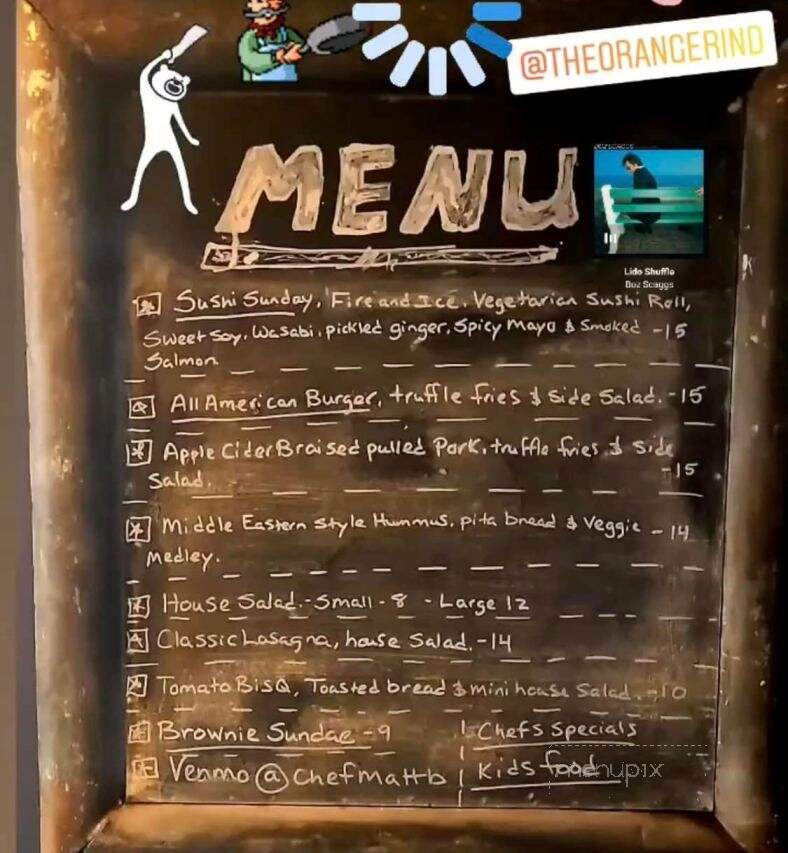 @THEORANGERIND
MENU
BOZ SCAGGS
Lido Shuffle
Boz Scaggs
Sushi Sunday, Fire and Ice, Vegetarian Sushi Roll,
Sweet Soy, Wasabi, pickled ginger, Spicy Mayo & Smoked -15
Salmon
All American Burger, truffle fries & side Salad. -15
Apple Cider Braised pulled Pork, truffle fries & Side
-15
Salad.
Middle Eastern Style Hummus, pita bread & Veggie - 14
Medley.
House Salad.-Small-8 -Large 12
Classic Lasagna, house Salad.-14
Tomato BisQ, Toasted bread & mini house Salad.-10
Brownie Sundae -9
Chefs Specials
Venmo @ Chefmattb
Kids food
menupix